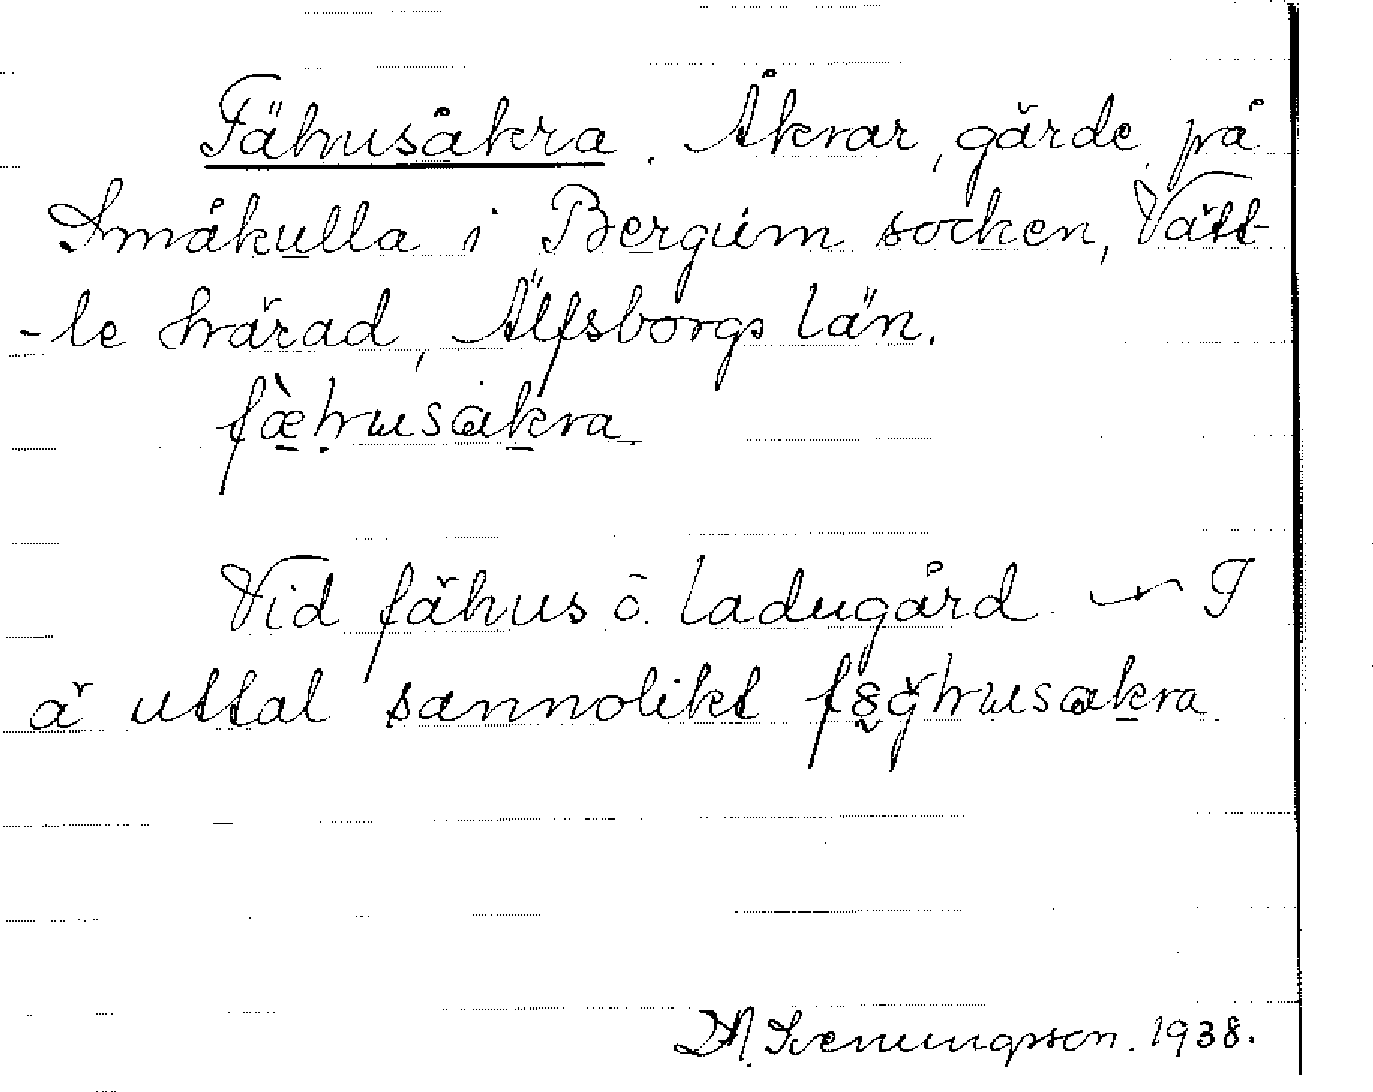 Fähusåkra. Åkrar, gärde på
Småkulla i Bergum socken, Vätt-
-le härad, Älfsborgs län.
fæ̀husåkra
Vid fähus ō. ladugård
uttal sannolikt
1938.